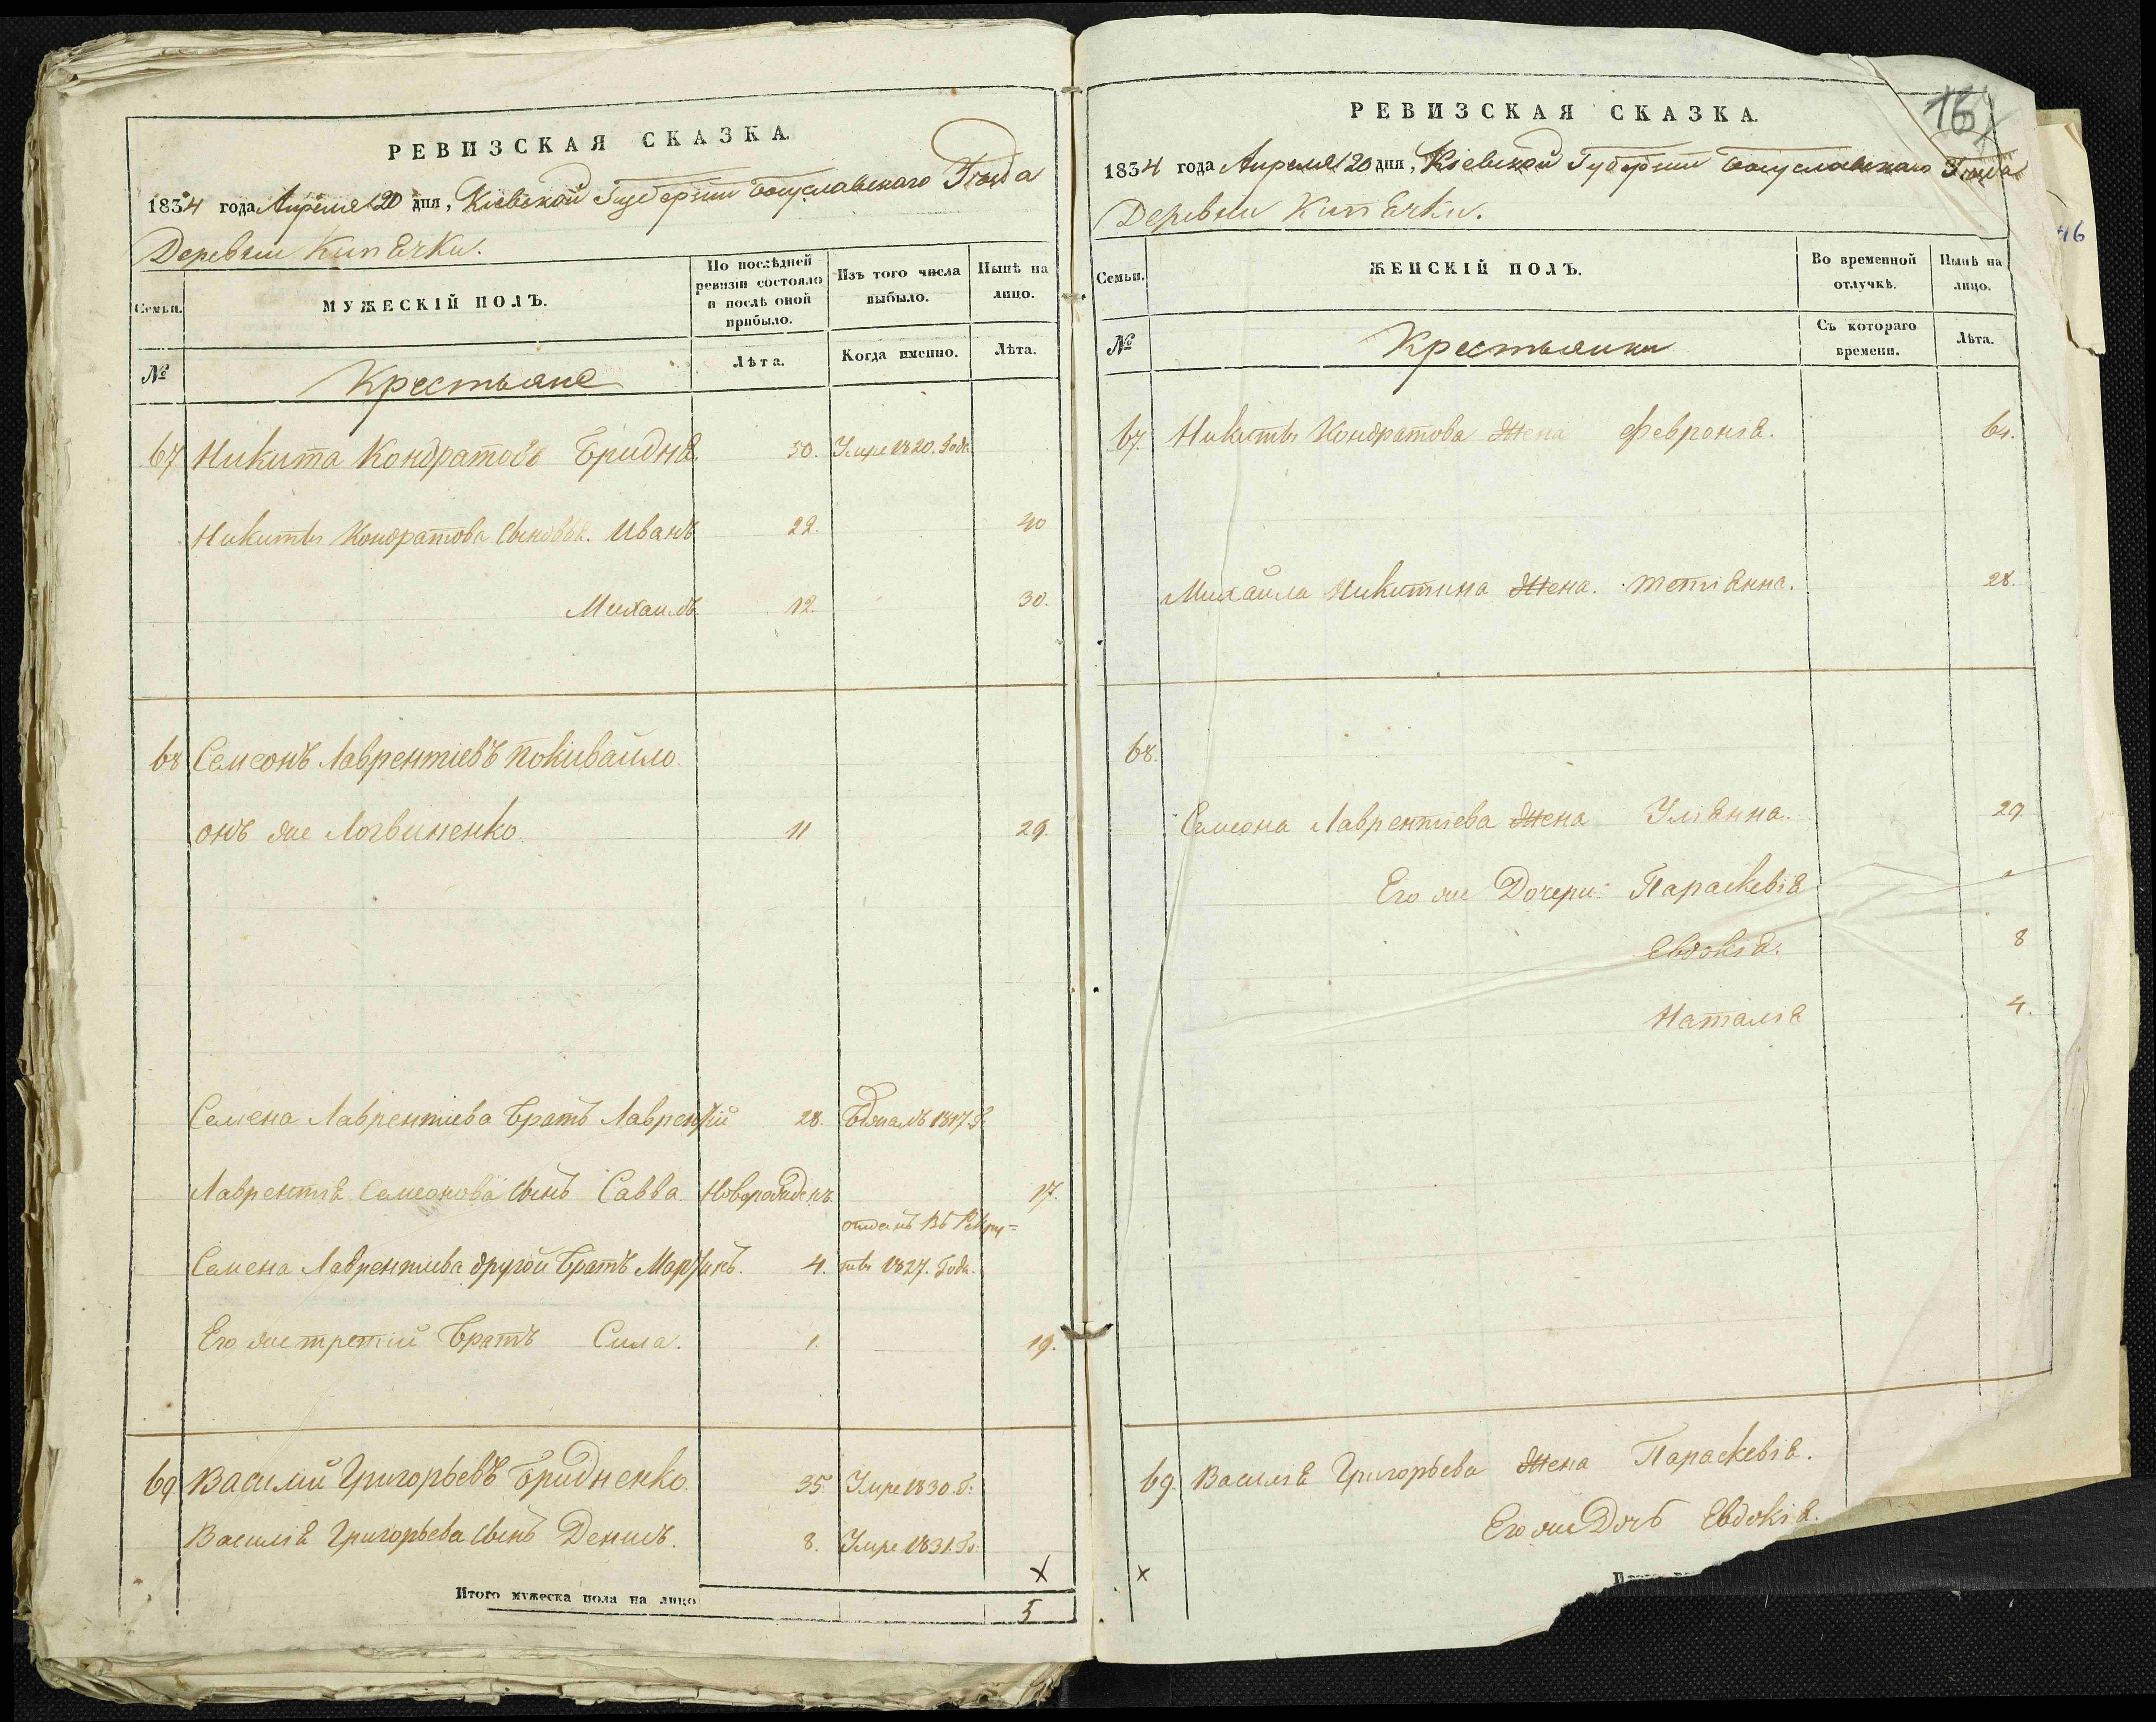 РЕВИЗСКАЯ СКАЗКА.
1834 года Апреля 20 дня, Кіевской Губерніи Богуславскаго Уѣзда
Деревни Кипячки.
Семьи.
МУЖЕСКІЙ ПОЛЪ.
По послѣдней ревизіи состояло и послѣ оной прибыло.
Изъ того числа выбыло.
Нынѣ на лицо.
№
Крестьяне
Лѣта.
Когда именно.
Лѣта.
67 Никита Кондратовъ Бридня. 50. Умре 1820. Года
Никиты Кондратова сыновья. Иванъ 22. 40
Михаилъ 12. 30.
68 Семеонъ Лаврентіевъ Покивайло
онъ же Логвиненко. 11 29.
Семена Лаврентіева братъ Лаврентій 28. Бѣжалъ 1817. Г.
Лаврентія Семеонова сынъ Савва Новорожденъ. 17.
отданъ въ Рекру=
Семена Лаврентіева другой братъ Мартинъ. 4. ты 1827. Года.
Его же третій братъ Сила. 1. 19.
69 Василій Григорьевъ Бридненко. 35. Умре 1830. Г:
Василія Григорьева сынъ Денисъ. 8. Умре 1831. Г:
X
Итого мужеска пола на лицо 5
РЕВИЗСКАЯ СКАЗКА.
1834 года Апреля 20 дня, Кіевской Губерніи Богуславскаго Уѣзда
Деревни Кипячки.
46
Семьи.
ЖЕНСКІЙ ПОЛЪ.
Во временной отлучкѣ.
Нынѣ на лицо.
№
Крестьянки
Съ котораго времени.
Лѣта.
67. Никиты Кондратова жена Февронія. 61.
Михаила Никитина жена. Тетіянна. 28.
68.
Семеона Лаврентіева жена Уліянна. 29
Его же Дочери: Параскевія
Евдокія. 8
Наталія 4.
69. Василія Григорьева жена Параскевія.
Его же Дочь Евдокія.
X